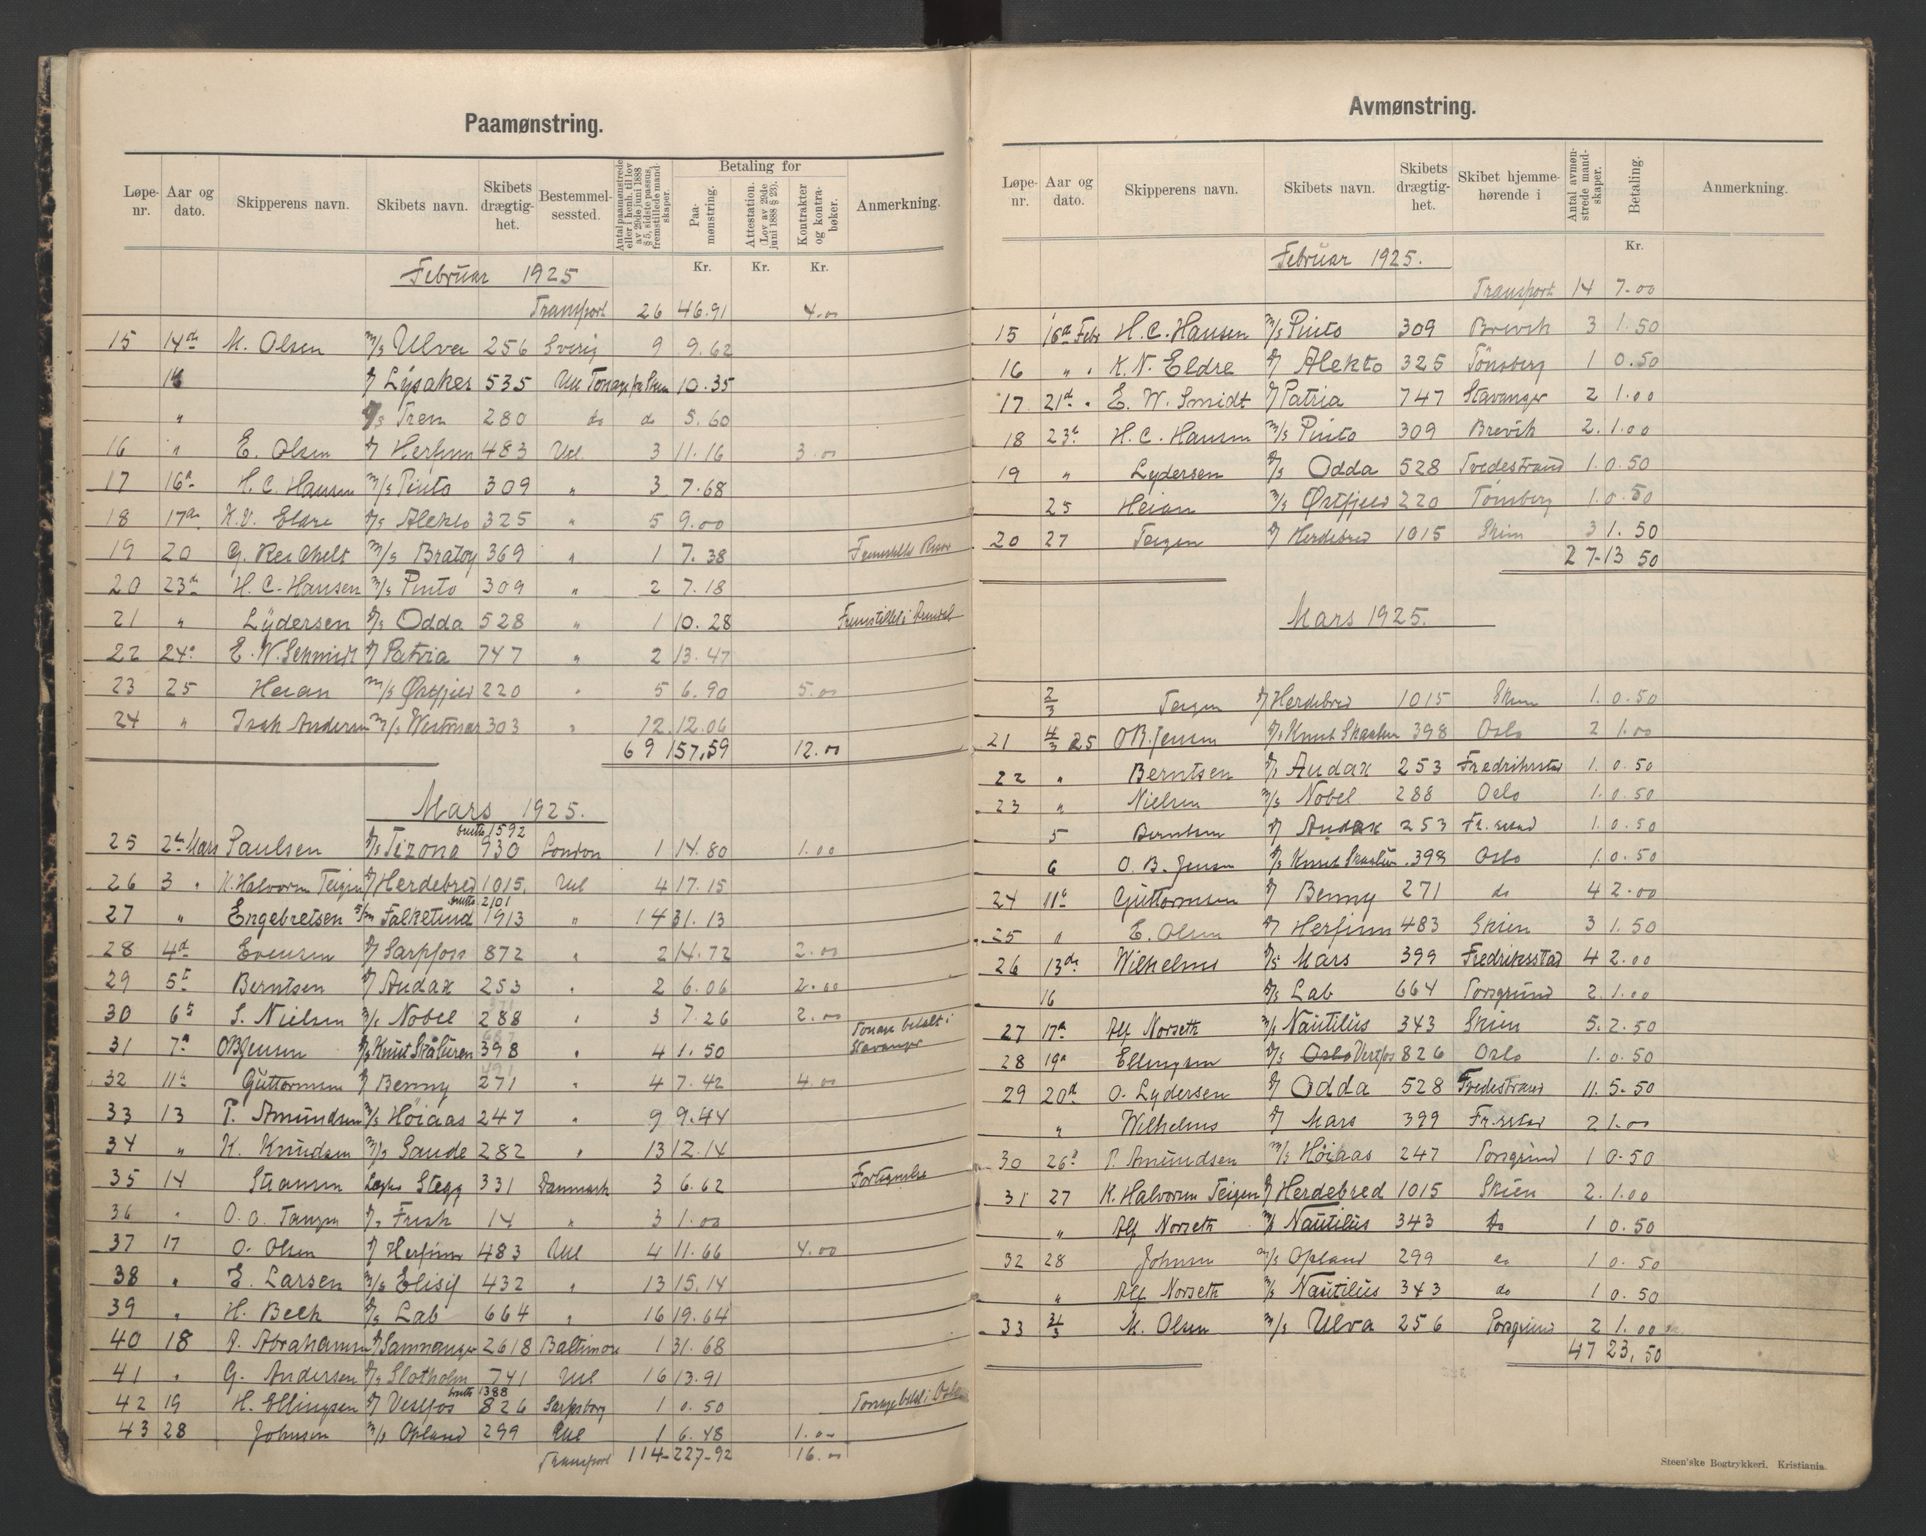 Paamønstring.
Løpe-nr. Aar og dato. Skipperens navn. Skibets navn. Skibets drægtig-het. Bestemmel-sessted. Antal paamønstrede eller i henh. til lov av 29de juni 1888 § 5, sidste passus, fremstillede mand-skaper. Betaling for Paa-mønstring. Attestation. (Lov av 29de juni 1888 § 23). Kontrakter og kontra-bøker. Anmerkning.
Kr. Kr. Kr.
Februar 1925
Transport 26 46.91 4.00
15 14de M. Olsen m/s Ulver 256 Sverig 9 9.62
14 s/s Lysaker 535 Utl 10.35
" s/s Trem 280 do do 5.60
16 " E. Olsen s/s Herfinn 483 Utl 3 11.16 3.00
17 16de H. C. Hansen m/s Pinto 309 " 3 7.68
18 17de K. V. Eldre s/s Alekto 325 " 5 9.00
19 20 G. Reichelt m/s Bratøy 369 " 1 7.38
20 23de H. C. Hansen m/s Pinto 309 " 2 7.18
21 " Lydersen s/s Odda 528 " 1 10.28 Fremstillet i
22 24de E. W. Schmidt s/s Patria 747 " 2 13.47
23 25 Heian m/s Østfjeld 220 " 5 6.90 5.00
24 " Isak Andersen m/s Westmar 303 " 12 12.06
69 157.59 12.00
Mars 1925.
brutto 1592
25 2de Mars Paulsen s/s Tizona 930 London 1 14.80 1.00
26 3 " K. Halvorsen Teigen s/s Herdebred 1015 Utl 4 17.15
brutto 2101
27 " Engebretsen Falketind 1913 " 14 31.13
28 4de Evensen s/s Sarpfoss 872 " 2 14.72 2.00
29 5te Berntsen s/s Audax 253 " 2 6.06 2.00
30 6te S. Nielsen m/s Nobel 288 " 3 7.26 2.00
31 7de O B Jensen s/s Knut Skåluren 398 " 4 1.50 Tonage betalt i Stavanger
32 11te Guttormsen s/s Benny 271 " 4 7.42 4.00
33 13 T. Amundsen m/s Höiaas 247 " 9 9.44
34 " K. Knudsen m/s Sande 282 " 13 12.14
35 14 Stransen Stegg 331 Danmark 3 6.62
36 " O. O. Tangen s/s Frisk 14 " 3 1.00
37 17 O. Olsen s/s Herfinn 483 Utl 4 11.66 4.00
38 " E. Larsen m/s Elisif 432 " 13 15.14
39 " H. Bech s/s Lab 664 " 16 19.64
40 18 A. Abrahamsen s/s Samnanger 2618 Baltimore 1 31.68
41 " G. Andersen s/s Slotholm 741 Utl 16 13.91
brutto 1388
42 19 H. Ellingsen s/s Vestfos 826 Sarpsborg 1 0.50 Tonage betalt i Oslo
43 28 Johnsen m/s Opland 299 Utl 1 6.48 1.00
Transport 114-227-92 16.00
Avmønstring.
Løpe-nr. Aar og dato. Skipperens navn. Skibets navn. Skibets drægtig-het. Skibet hjemme-hørende i Antal avmøn-strede mand-skaper. Betaling. Anmerkning.
Kr.
Februar 1925.
Transport 14 7-00
15 16de Febr H. C. Hansen m/s Pinto 309 Brevik 3 1.50
16 " " K. N. Eldre s/s Alekto 325 Tönsberg 1 0.50
17 21de " E. W. Smidt s/s Patria 747 Stavanger 2 1.00
18 23de H. C. Hansen m/s Pinto 309 Brevik 2. 1.00
19 " Lydersen s/s Odda 528 Tvedestrand 1. 0.50
25 Heian m/s Østfjeld 220 Tönsberg 1. 0.50
20 27 Teigen s/s Herdebred 1015 Skien 3 1.50
27-13 50
Mars 1925.
2/3 Teigen s/s Herdebred 1015 Skien 1. 0.50
21 4/3 25 O B. Jensen s/s Knut Skaaluren 398 Oslo 2 1.00
22 " Berntsen s/s Audax 253 Fredriksstad 1. 0.50
23 " Nielsen m/s Nobel 288 Oslo 1. 0.50
5 Berntsen s/s Audax 253 Fr. stad 1. 0.50
6 O. B. Jensen s/s Knut Skaaluren 398 Oslo 1. 0.50
24 11te Guttormsen s/s Benny 271 do 4 2.00
25 " E. Olsen s/s Herfinn 483 Skien 3 1.50
26 13de Wilhelms s/s Mars 399 Fredriksstad 4 2.00
16 s/s Lab 664 Porsgrund 2. 1.00
27 17de Alf Norseth m/s Nautilus 343 Skien 5. 2.50
28 19de Ellingsen s/s Oslo Vestfos 826 Oslo 1. 0.50
29 20de O. Lydersen s/s Odda 528 Tvedestrand 11. 5-50
" Wilhelms s/s Mars 399 Fr.stad 2 1-00
30 26de T. Amundsen m/s Höiaas 247 Porsgrund 1 0-50
31 27 K. Halvorsen Teigen s/s Herdebred 1015 Skien 2. 1.00
" Alf Norseth m/s Nautilus 343 do 1 0.50
32 28 Johnsen m/s Opland 299 do 1 0.50
" Alf Norseth m/s Nautilus 343 do 1 0.50
33 31/3 M. Olsen m/s Ulva 256 Porsgrund 2 1.00
47 23,50
Steen'ske Bogtrykkeri. Kristiania.